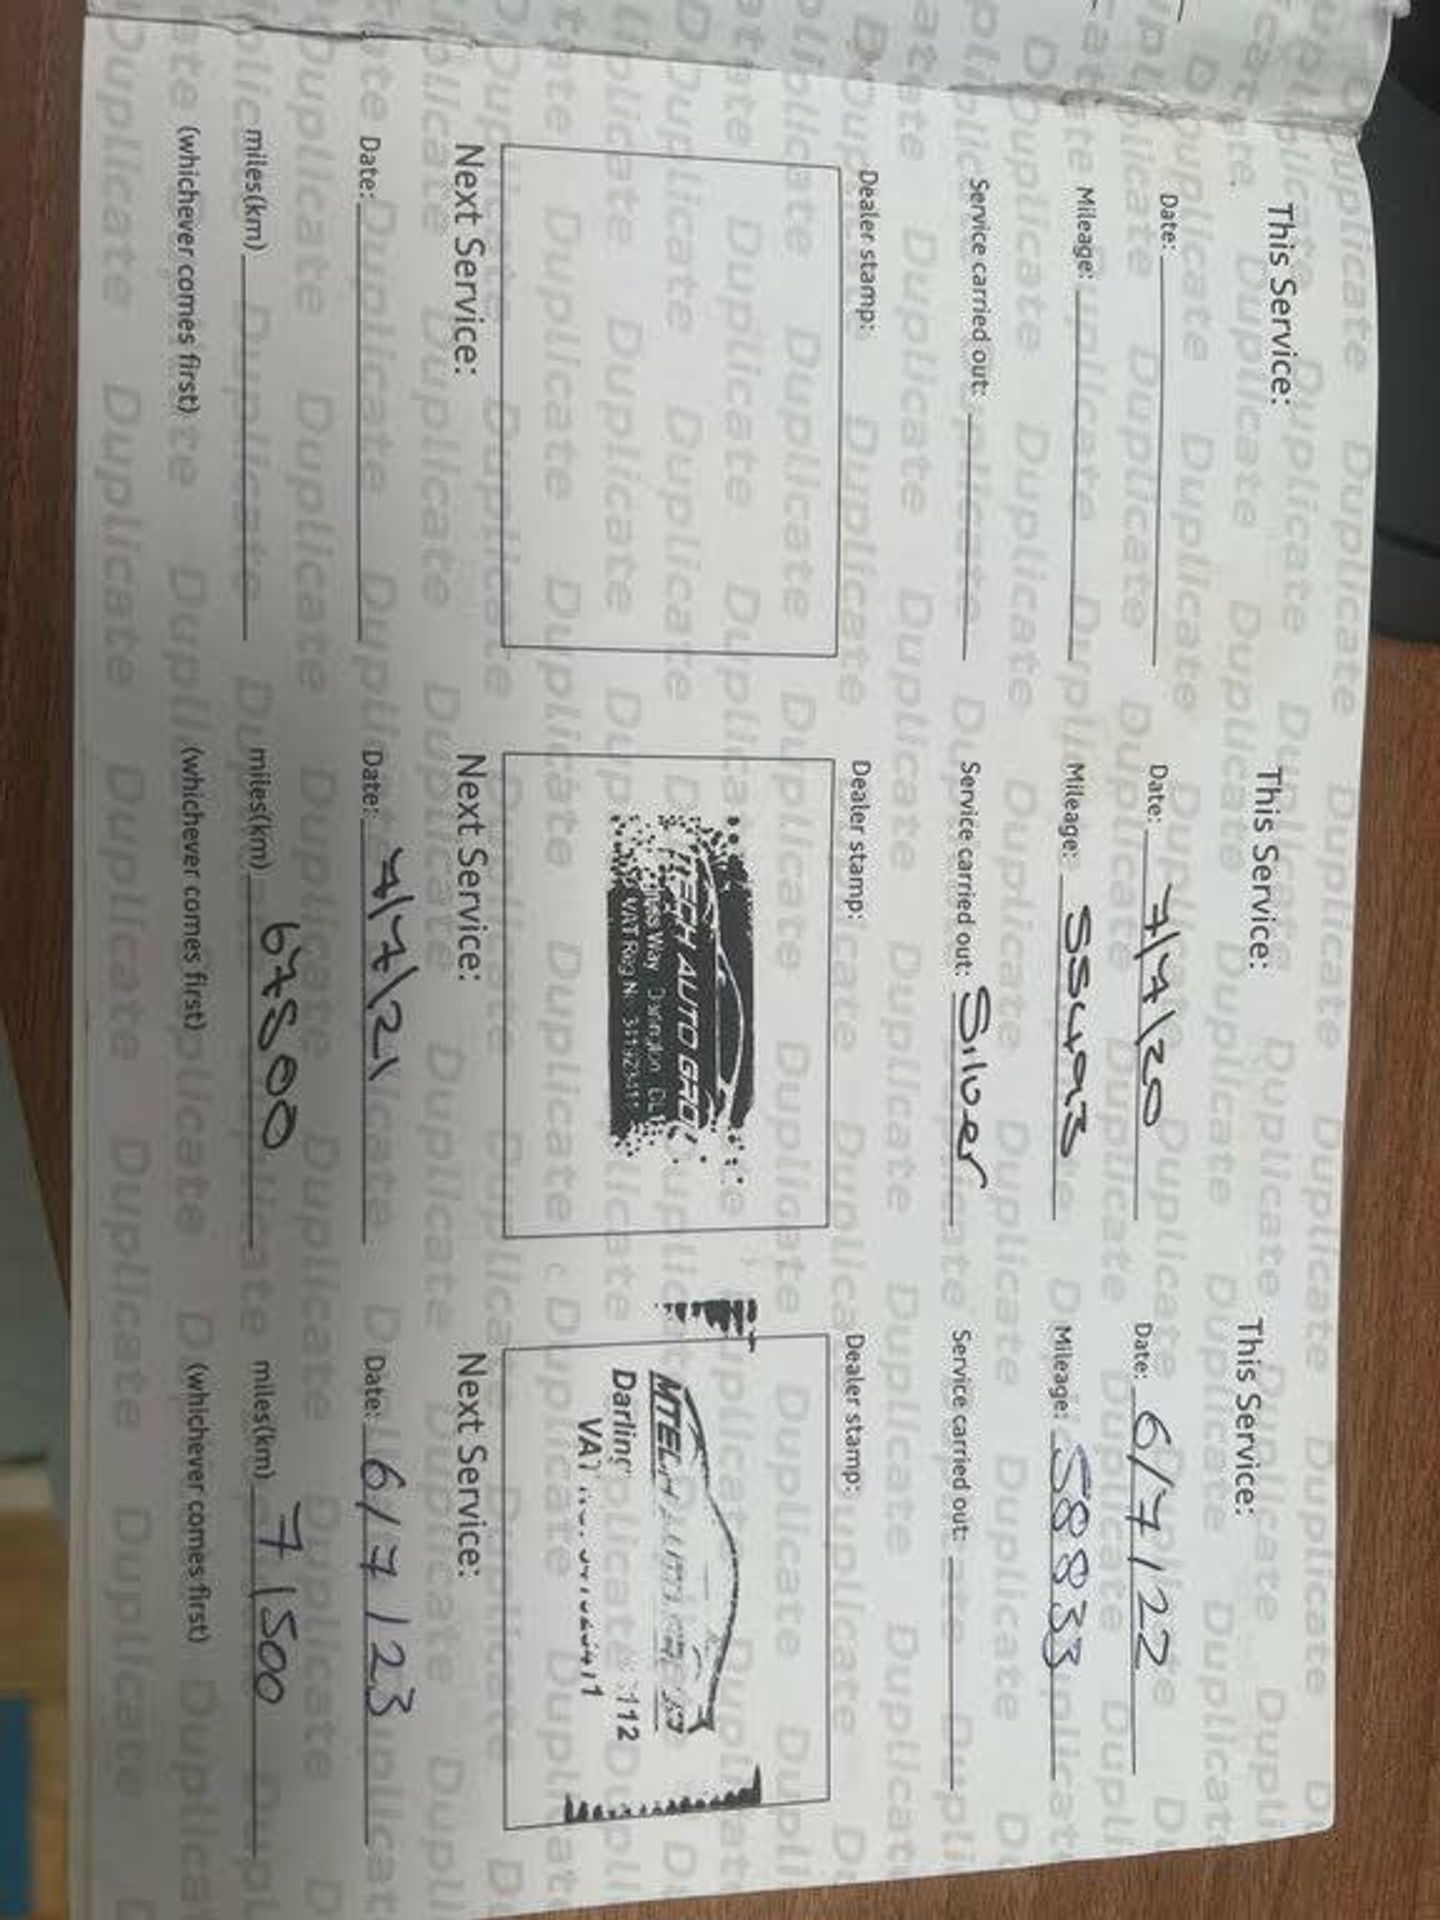 This Service:
Date:
Mileage:
Service carried out:
Dealer stamp:
Next Service:
Date:
miles(km)
(whichever comes first)
This Service:
Date: 7/7/20
Mileage: 55493
Service carried out: Silver
Dealer stamp:
TECH AUTO GRO
Way
VAT Reg N
Next Service:
Date: 7/7/21
miles(km) 67500
(whichever comes first)
This Service:
Date: 6/7/22
Mileage: 58833
Service carried out:
Dealer stamp:
MTECH
Darling 112
VAT
Next Service:
Date: 6/7/23
miles(km) 71500
(whichever comes first)
Duplicate Duplicate Duplicate Duplicate Duplicate